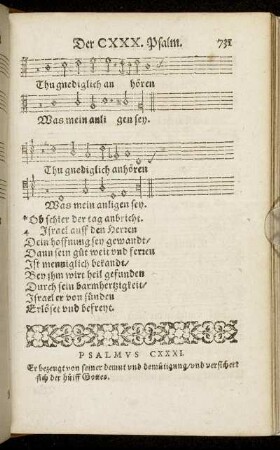 Der CXXX. Psalm. 731
Thu gnediglich an hören
Was mein anli gen sey.
Thu gnediglich anhören
Was mein anligen sey.
* Ob schier der tag anbricht.
4 Israel auff den Herren
Dein hoffnung sey gewandt/
Dann sein güt weit vnd fernen
Ist menniglich bekandt/
Bey ihm wirt heil gefunden
Durch sein barmhertzigkeit/
Israel er von sünden
Erlöset vnd befreyt.
PSALMVS CXXXI.
Er bezeugt von seiner demut vnd demütigung/vnd versichert
sich der hülff Gottes.